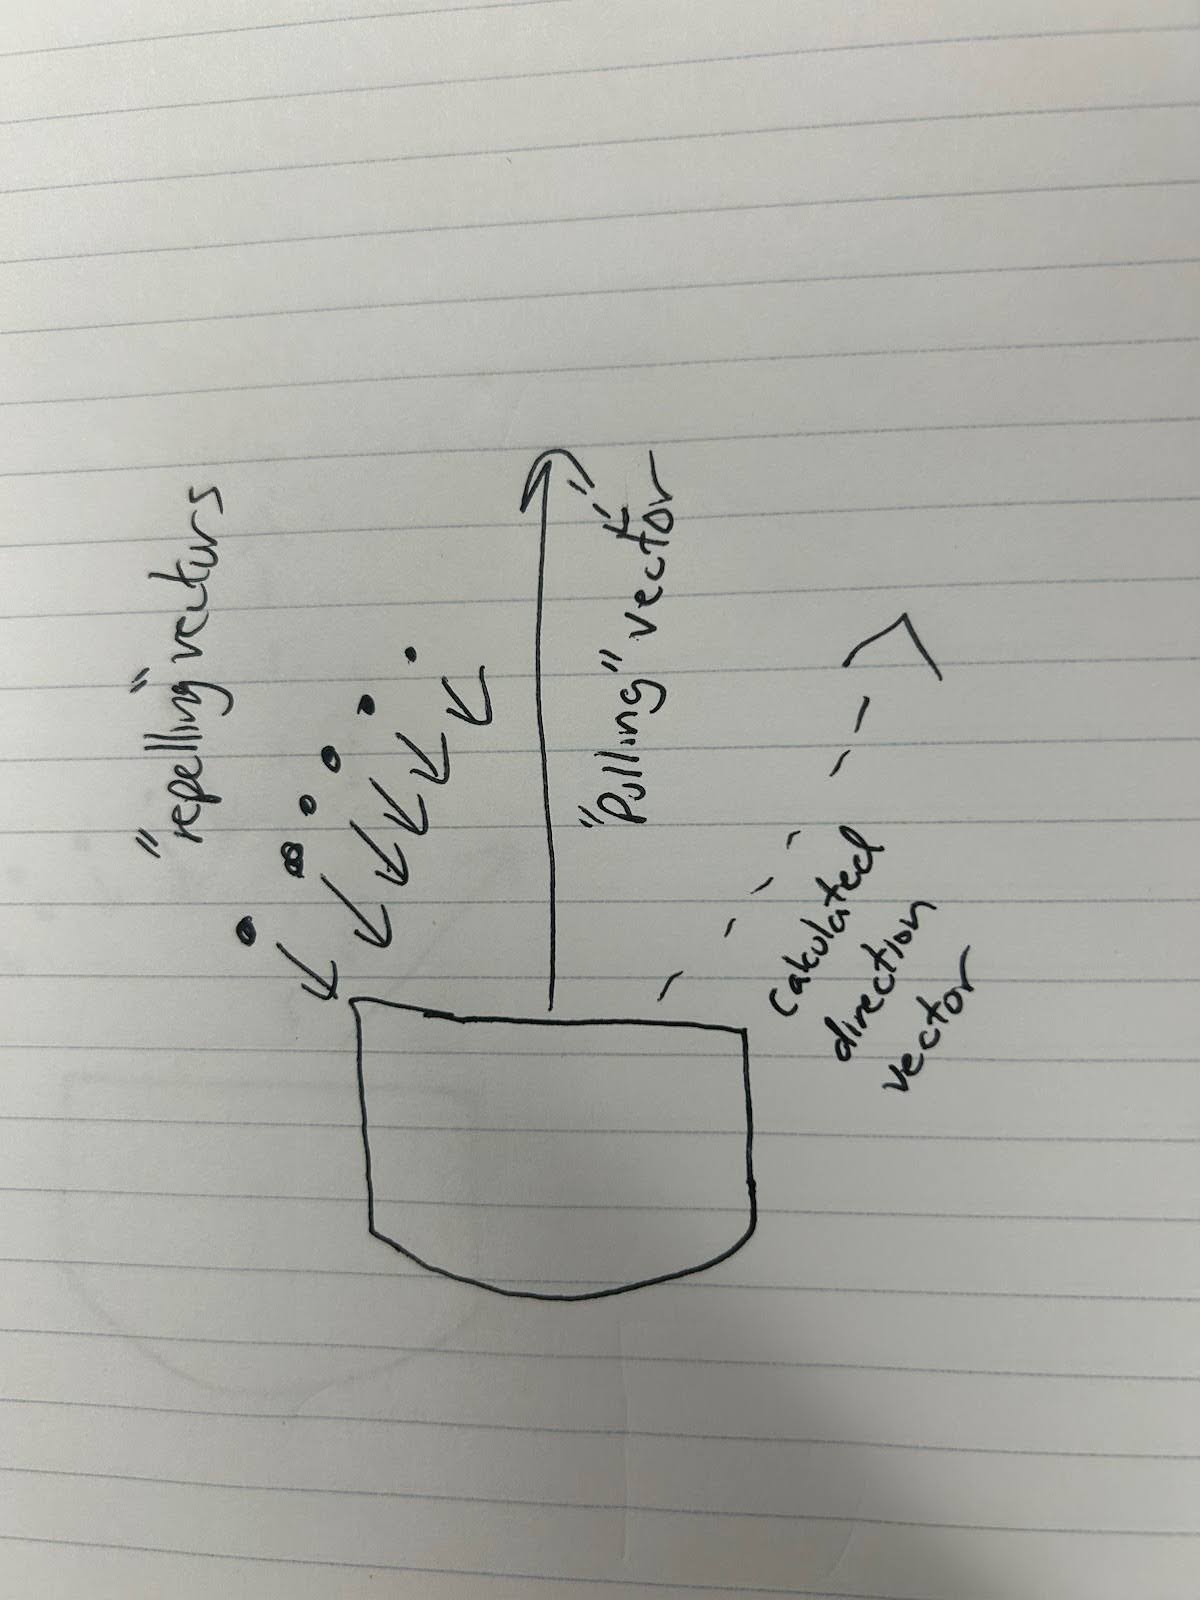 "repelling" vectors
"Pulling" vector
calculated
direction
vector